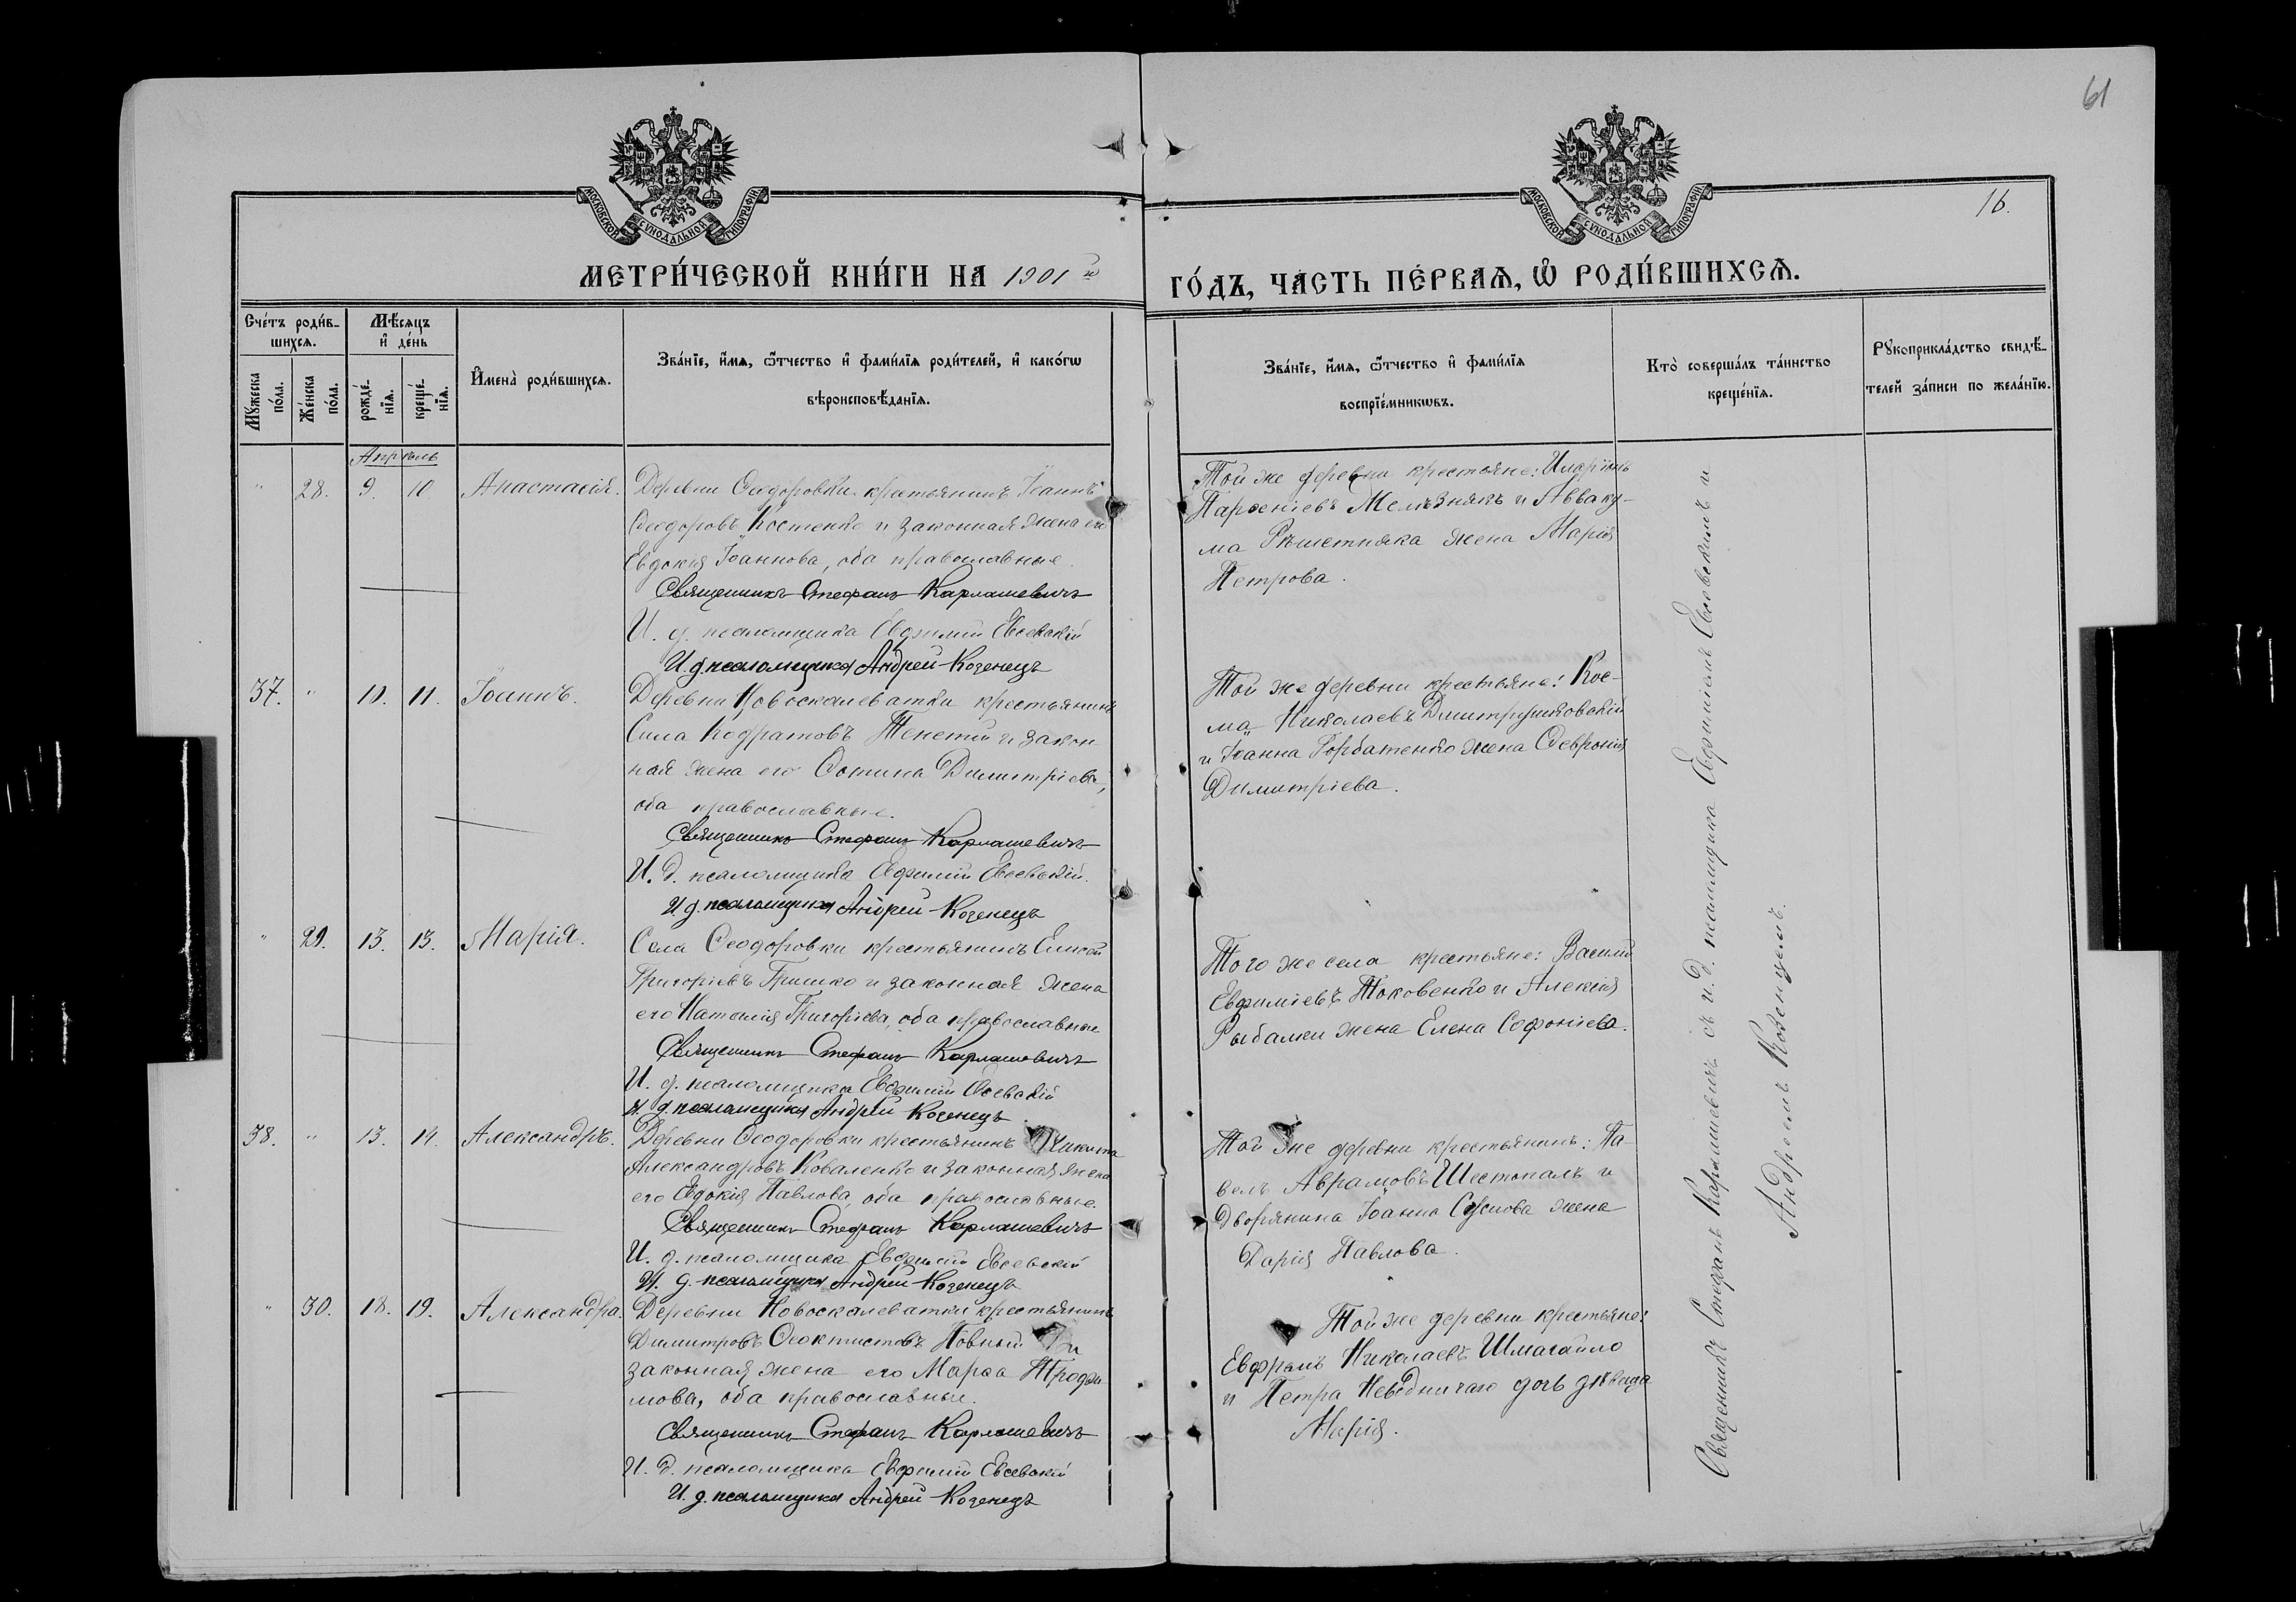 61
16.
МОСКОВСКОЙ СѴНОДАЛЬНОЙ ТИПОГРАФІИ
МОСКОВСКОЙ СѴНОДАЛЬНОЙ ТИПОГРАФІИ
МЕТРИ́ЧЕСКОЙ КНИ́ГИ НА 1901й
ГО́ДЪ, ЧА́СТЬ ПЕ́РВАѦ, Ѽ РОДИ́ВШИХСѦ.
Сче́тъ роди́в-
шихсѧ.
Мѣ́сѧцъ
и҆ де́нь
Мꙋ́жеска
по́ла.
Же́нска
по́ла.
рожде́-
нїѧ.
креще́-
нїѧ.
И҆мена̀ роди́вшихсѧ.
Зва́нїе, и҆́мѧ, ѻ҆́тчество и҆ фами́лїѧ роди́телей, и҆ како́гѡ
вѣроисповѣ́данїѧ.
Зва́нїе, и҆́мѧ, ѻ҆́тчество и҆ фами́лїѧ
воспрїе́мникѡвъ.
Кто̀ соверша́лъ та́инство
креще́нїѧ.
Рꙋкоприкла́дство свидѣ́-
телей за́писи по жела́нїю.
Апрѣль
" 28. 9. 10 Анастасія.
Деревни Ѳеодоровки крестьянинъ Іоаннъ
Ѳеодоровъ Костенко и законная жена его
Евдокія Іоаннова, оба православные.
Священникъ Стефанъ Карлашевичъ
И. д. псаломщика Евфимій Евсевскій
И. д. псаломщика Андрей Козенецъ
Той же деревни крестьяне: Иларіонъ
Парѳеніевъ Мельзнякъ и Авваку-
ма Рѣшетняка жена Марія
Петрова.
37. " 10. 11. Іоаннъ.
Деревни Новоскалеватки крестьянинъ
Сила Кодратовъ Тенетій и закон-
ная жена его Фотина Димитріева,
оба православные.
Священникъ Стефанъ Карлашевичъ
И. д. псаломщика Евфимій Евсевскій.
И. д. псаломщика Андрей Козенецъ
Той же деревни крестьяне: Кос-
ма Николаевъ Дмитрушковскій
и Іоанна Горбатенко жена Ѳевронія
Димитріева.
" 29. 13. 13. Марія.
Села Ѳеодоровки крестьянинъ Елисей
Григоріевъ Гришко и законная жена
его Наталія Григоріева, оба православные
Священникъ Стефанъ Карлашевичъ
И. д. псаломщика Евфимій Евсевскій
И. д. псаломщика Андрей Козенецъ
Того же села крестьяне: Василій
Евфиміевъ Токовенко и Алексія
Рыбалки жена Елена Софоніева.
38. " 13. 14. Александръ.
Деревни Ѳеодоровки крестьянинъ Никита
Александровъ Коваленко и законная жена
его Евдокія Павлова, оба православные.
Священникъ Стефанъ Карлашевичъ
И. д. псаломщика Евфимій Евсевскій
И. д. псаломщика Андрей Козенецъ
Той же деревни крестьянинъ: Па-
велъ Аврамовъ Шестопалъ и
Дворянина Іоанна жена
Дарія Павлова.
" 30. 18. 19. Александра.
Деревни Новоскалеватки крестьянинъ
Димитровъ Ѳеоктистовъ Повный и
законная жена его Марѳа Трофи-
мова, оба православные.
Священникъ Стефанъ Карлашевичъ
И. д. псаломщика Евфимій Евсевскій
И. д. псаломщика Андрей Козенецъ
Той же деревни крестьяне:
Евфремъ Николаевъ Шмагайло
и Петра Невідничаго дочь дѣвица
Марія.
Священникъ Стефанъ Карлашевичъ съ и. д. псаломщика Евфиміемъ Евсевскимъ и
Андреемъ Козенцемъ.